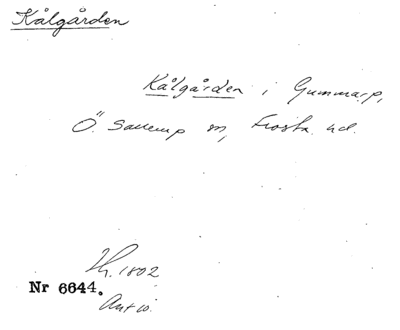 Kålgården
Kålgården i Gummarp,
Ö. Sallerup sn, Frosta hd.
Nr 6644.